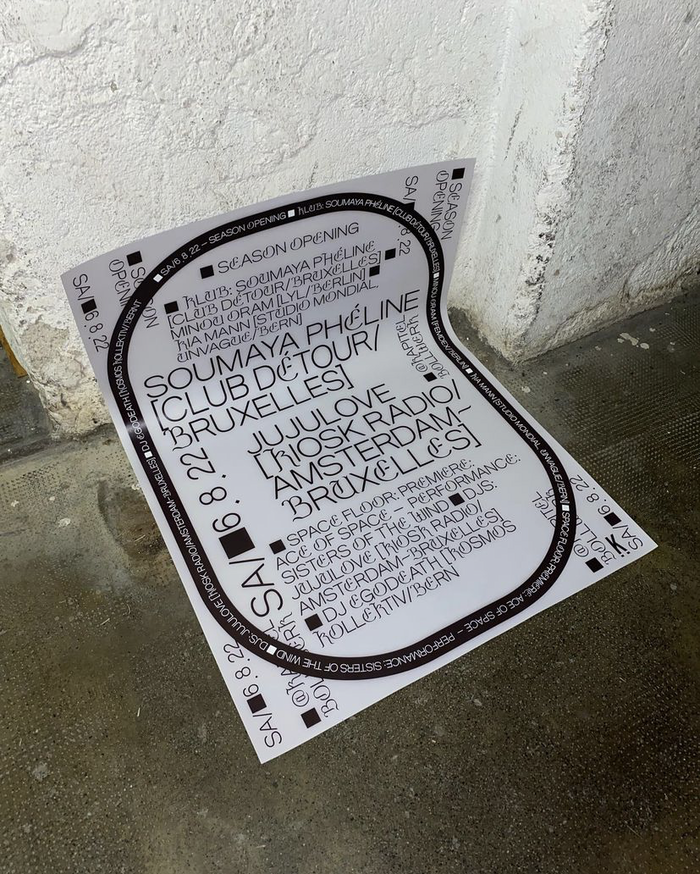 SA/■6.8.22
■SEASON
OPENING
■SEASON
OPENING
■ SA/6.8.22 — SEASON OPENING ■ KLUB: SOUMAYA PHÉLINE [CLUB DÉTOUR/BRUXELLES]
■ SEASON OPENING
■ KLUB: SOUMAYA PHÉLINE
[CLUB DÉTOUR/BRUXELLES] ■
MINOU ORAM [LYL/BERLIN] ■
KIA MANN [STUDIO MONDIAL
UNVAGUE/BERN]
SOUMAYA PHÉLINE
[CLUB DÉTOUR/
BRUXELLES]
JUJULOVE
[KIOSK RADIO/
AMSTERDAM–
BRUXELLES]
SA/■6.8.22
■ SPACE FLOOR: PREMIERE:
ACE OF SPACE – PERFORMANCE:
SISTERS OF THE WIND ■ DJS:
JUJULOVE [KIOSK RADIO/
AMSTERDAM–BRUXELLES]
■ DJ EGODEATH [KOSMOS
KOLLEKTIV/BERN
■ SPACE FLOOR: PREMIERE: ACE OF SPACE – PERFORMANCE: SISTERS OF THE WIND ■ DJS: JUJULOVE [KIOSK RADIO/AMSTERDAM–BRUXELLES] ■ DJ EGODEATH [KOSMOS KOLLEKTIV/BERN
SA/■6.8.22
SA/■6.8.22